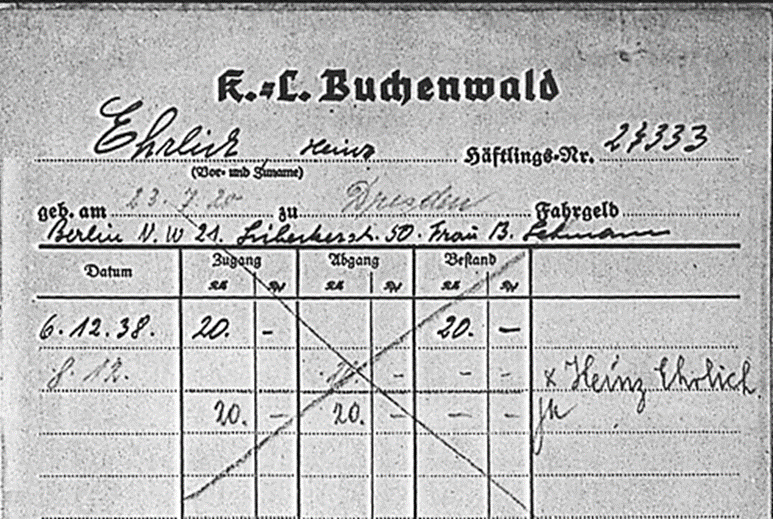 K.=L. Buchenwald
Ehrlich Heinz Häftlings-Nr. 27333
(Vor- und Zuname)
geb. am 23. 7. 20 zu Dresden Fahrgeld
Berlin N.W 21. 50. Frau B. Lehmann
Datum Zugang Abgang Bestand
RM Rpf RM Rpf RM Rpf
6.12.38. 20. - 20. -
8.12. - - - x Heinz Ehrlich.
20. - 20. - - -